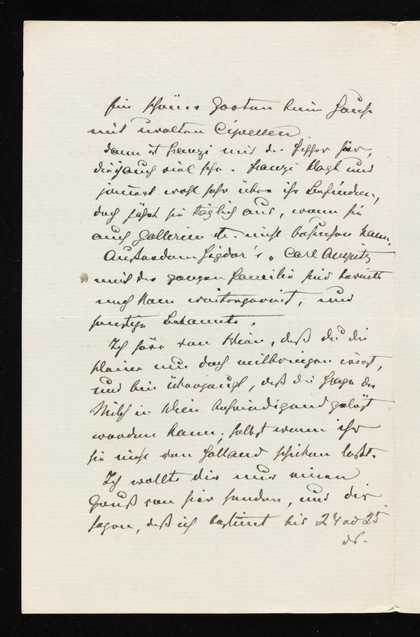 ein schöner Garten beim Hause
mit uralten Cipressen
dann ist Franzi mit da
die auch viel . Franzi klagt und
jammert wohl sehr über ihr Befinden,
doch fährt sie täglich aus, wenn sie
auch Gallerien etc. nicht besuchen kann.
Ausserdem Figdor's, Carl Auspitz
mit der ganzen Familie sind bereits
nach Rom weitergereist, und
sonstige Bekannte.
Ich höre von Wien, daß du die
Kleine nun doch mitbringen wirst,
und bin überzeugt, daß die Frage der
Milch in Wien befriedigend gelöst
werden kann, selbst wenn ihr
sie nicht von Holland schicken laßt.
Ich wollte dir nur einen
Gruß von hier senden, und dir
sagen, daß ich bestimmt bis 24 od 25
ds.